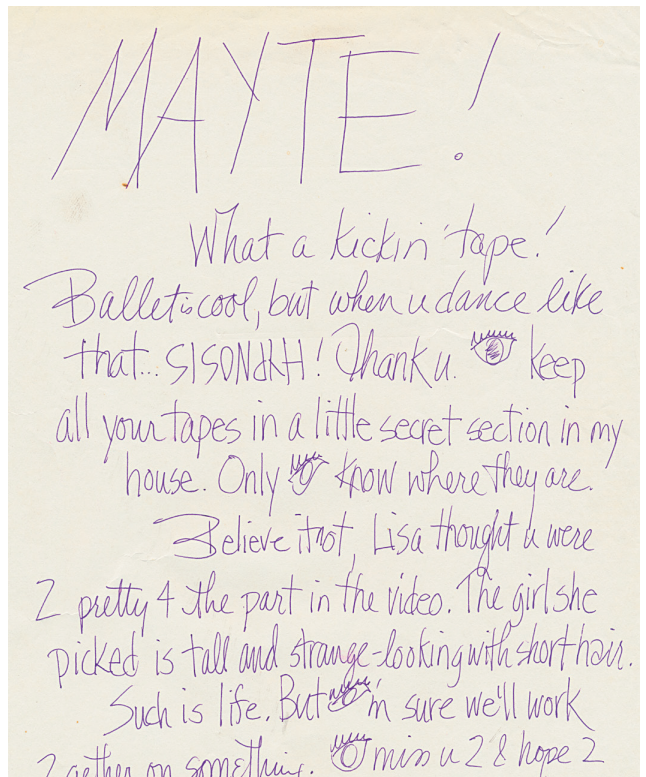 MAYTE!
What a kickin' tape!
Ballet is cool, but when u dance like
that... SISONPYH! Thank u. 👁 keep
all your tapes in a little secret section in my
house. Only 👁 know where they are.
Believe it not, Lisa thought u were
2 pretty 4 the part in the video. The girl she
picked is tall and strange-looking with short hair.
Such is life. But 👁'm sure we'll work
2gether on something. 👁 miss u 2 & hope 2